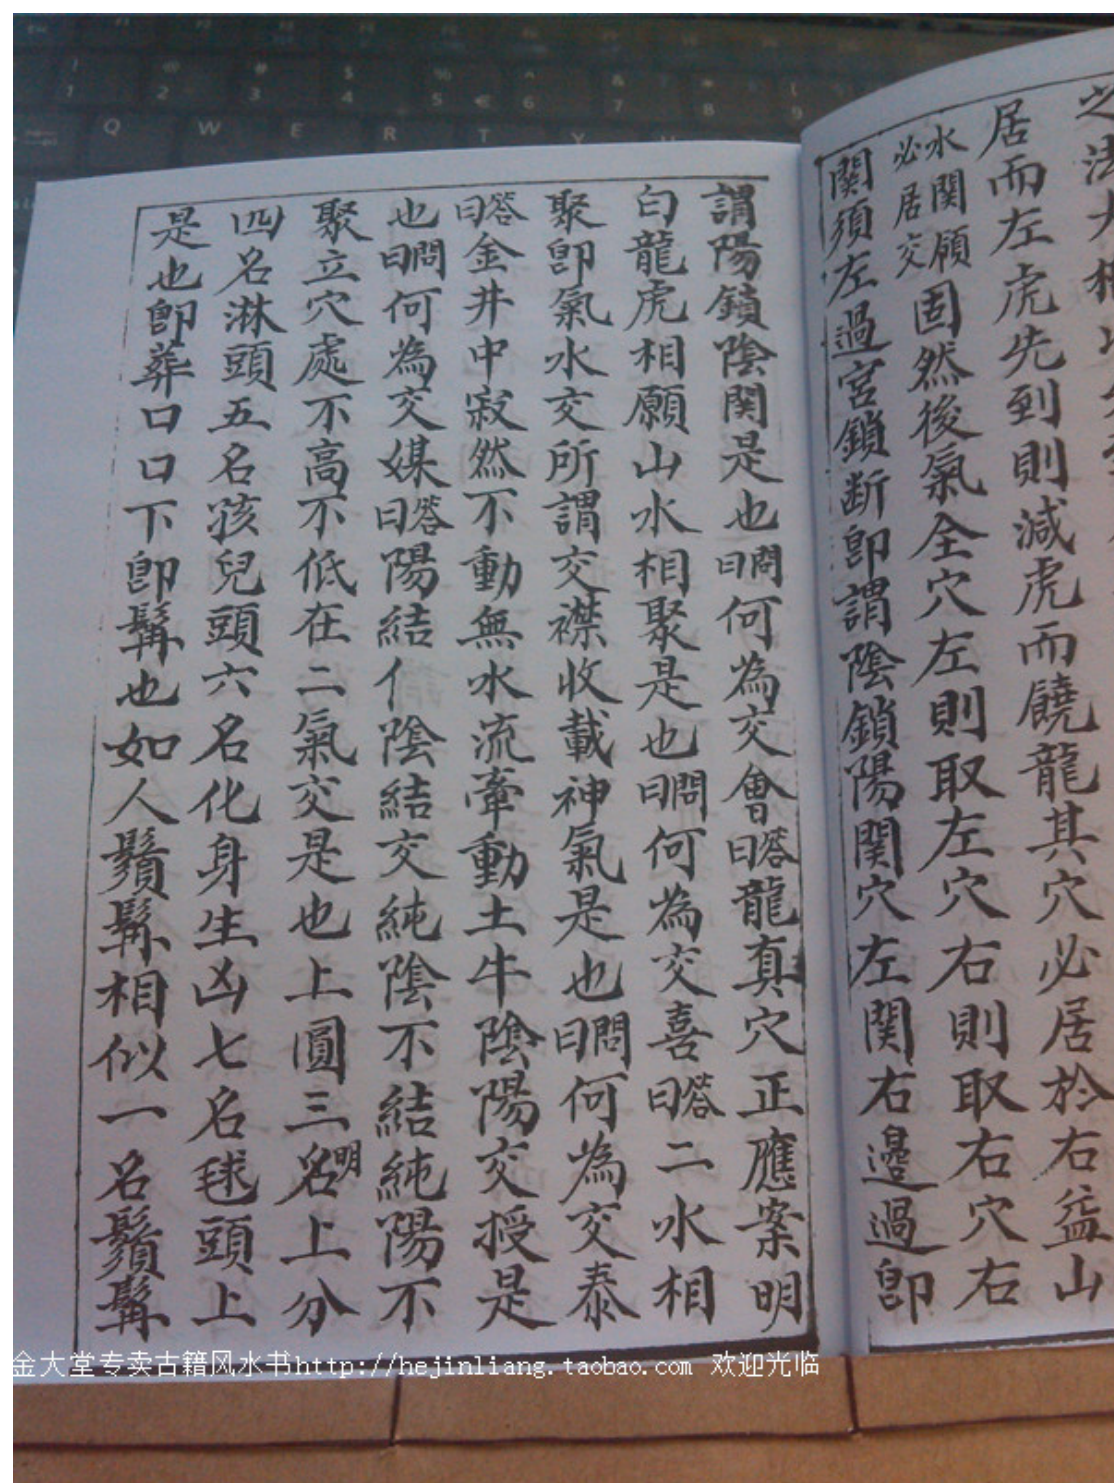 居而左虎先到則減虎而饒龍其穴必居於右益山
水関願必居交固然後氣全穴左則取左穴右則取右穴右
関須左過宮鎖断即謂陰鎖陽関穴左関右邊過即
謂陽鎖陰関是也問曰何為交會答曰龍真穴正應案明
白龍虎相願山水相聚是也問曰何為交喜答曰二水相
聚即氣水交所謂交襟收載神氣是也問曰何為交泰
答曰金井中寂然不動無水流牽動土牛陰陽交授是
也問曰何為交媒答曰陽結亻陰結交純陰不結純陽不
聚立穴處不高不低在二氣交是也上圓三名明上分
四名淋頭五名孩兒頭六名化身生凶七名毬頭上
是也即葬口口下即髯也如人鬚髯相似一名鬚髯
金大堂专卖古籍风水书http://hejinliang.taobao.com 欢迎光临